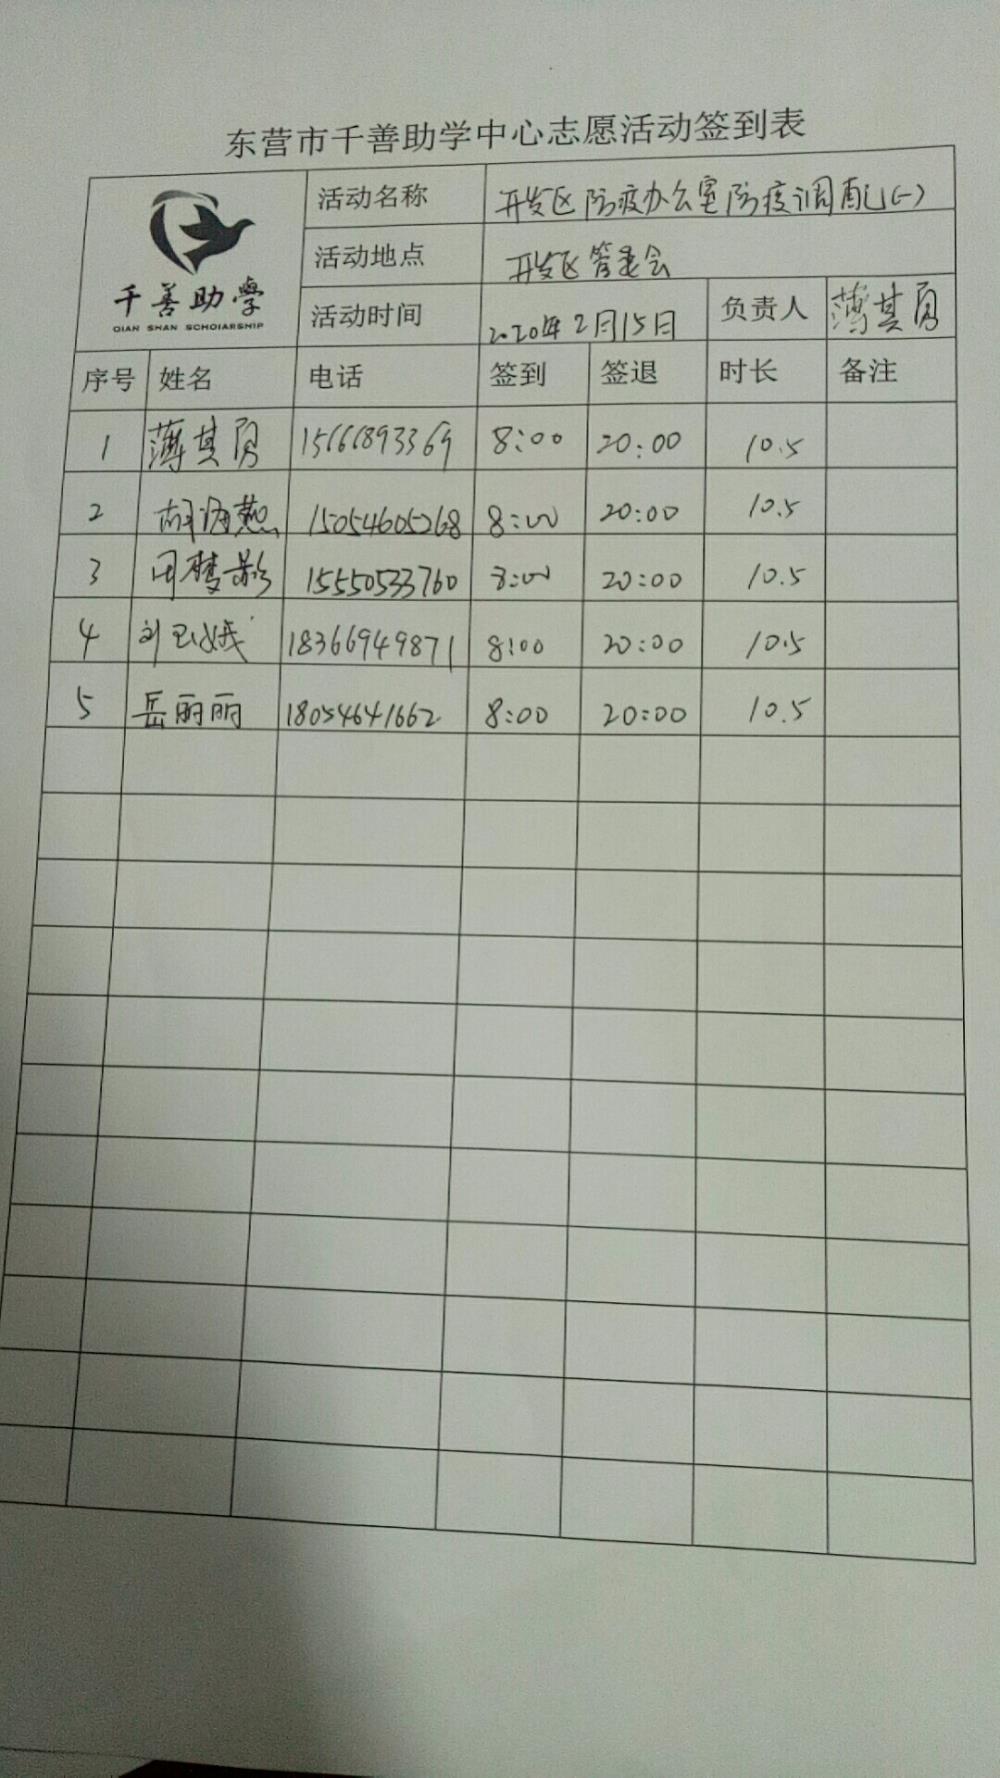 东营市千善助学中心志愿活动签到表
千善助學
QIAN SHAN SCHOIARSHIP
活动名称 开发区防疫办公室防疫调配(一)
活动地点 开发区管委会
活动时间 2020年2月15日 负责人 薄其
序号 姓名 电话 签到 签退 时长 备注
1 薄其 15666893369 8:00 20:00 10.5
2 胡海燕 15054605268 8:00 20:00 10.5
3 周梦影 15550533760 8:00 20:00 10.5
4 刘玉娥 18366949871 8:00 20:00 10.5
5 岳丽丽 18054641662 8:00 20:00 10.5